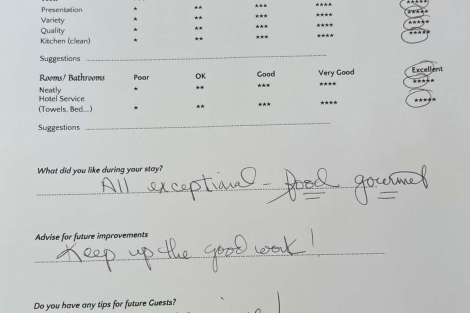 Presentation * ** *** **** *****
Variety * ** *** **** *****
Quality * ** *** **** *****
Kitchen (clean) * ** *** **** *****
Suggestions
Rooms/ Bathrooms Poor OK Good Very Good Excellent
Neatly * ** *** **** *****
Hotel Service
(Towels, Bed...) * ** *** **** *****
Suggestions
What did you like during your stay?
All exceptional - food gourmet
Advise for future improvements
Keep up the good work!
Do you have any tips for future Guests?